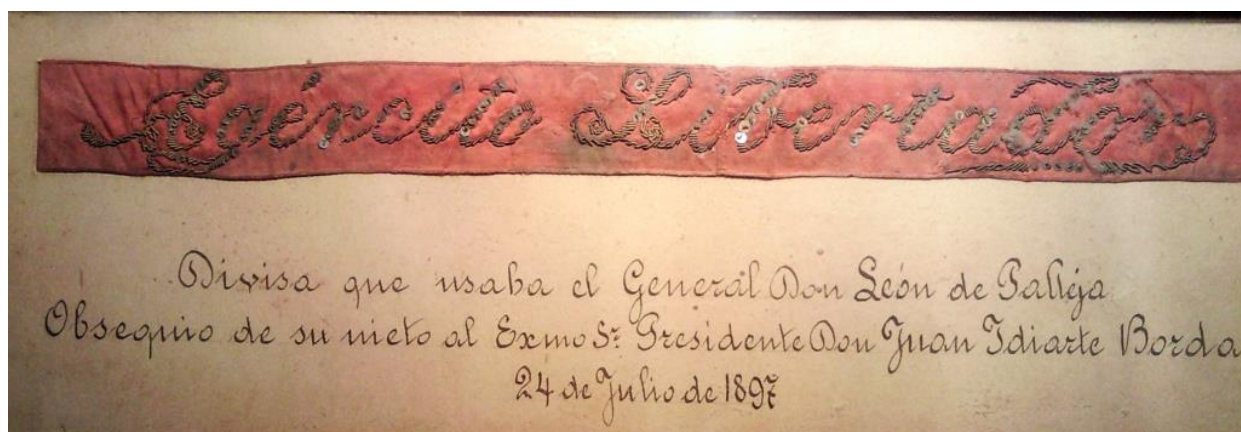 Egército Libertador
Divisa que usaba el General Don León de Palleja
Obsequio de su nieto al Exmo Sr. Presidente Don Juan Idiarte Borda
24 de Julio de 1897